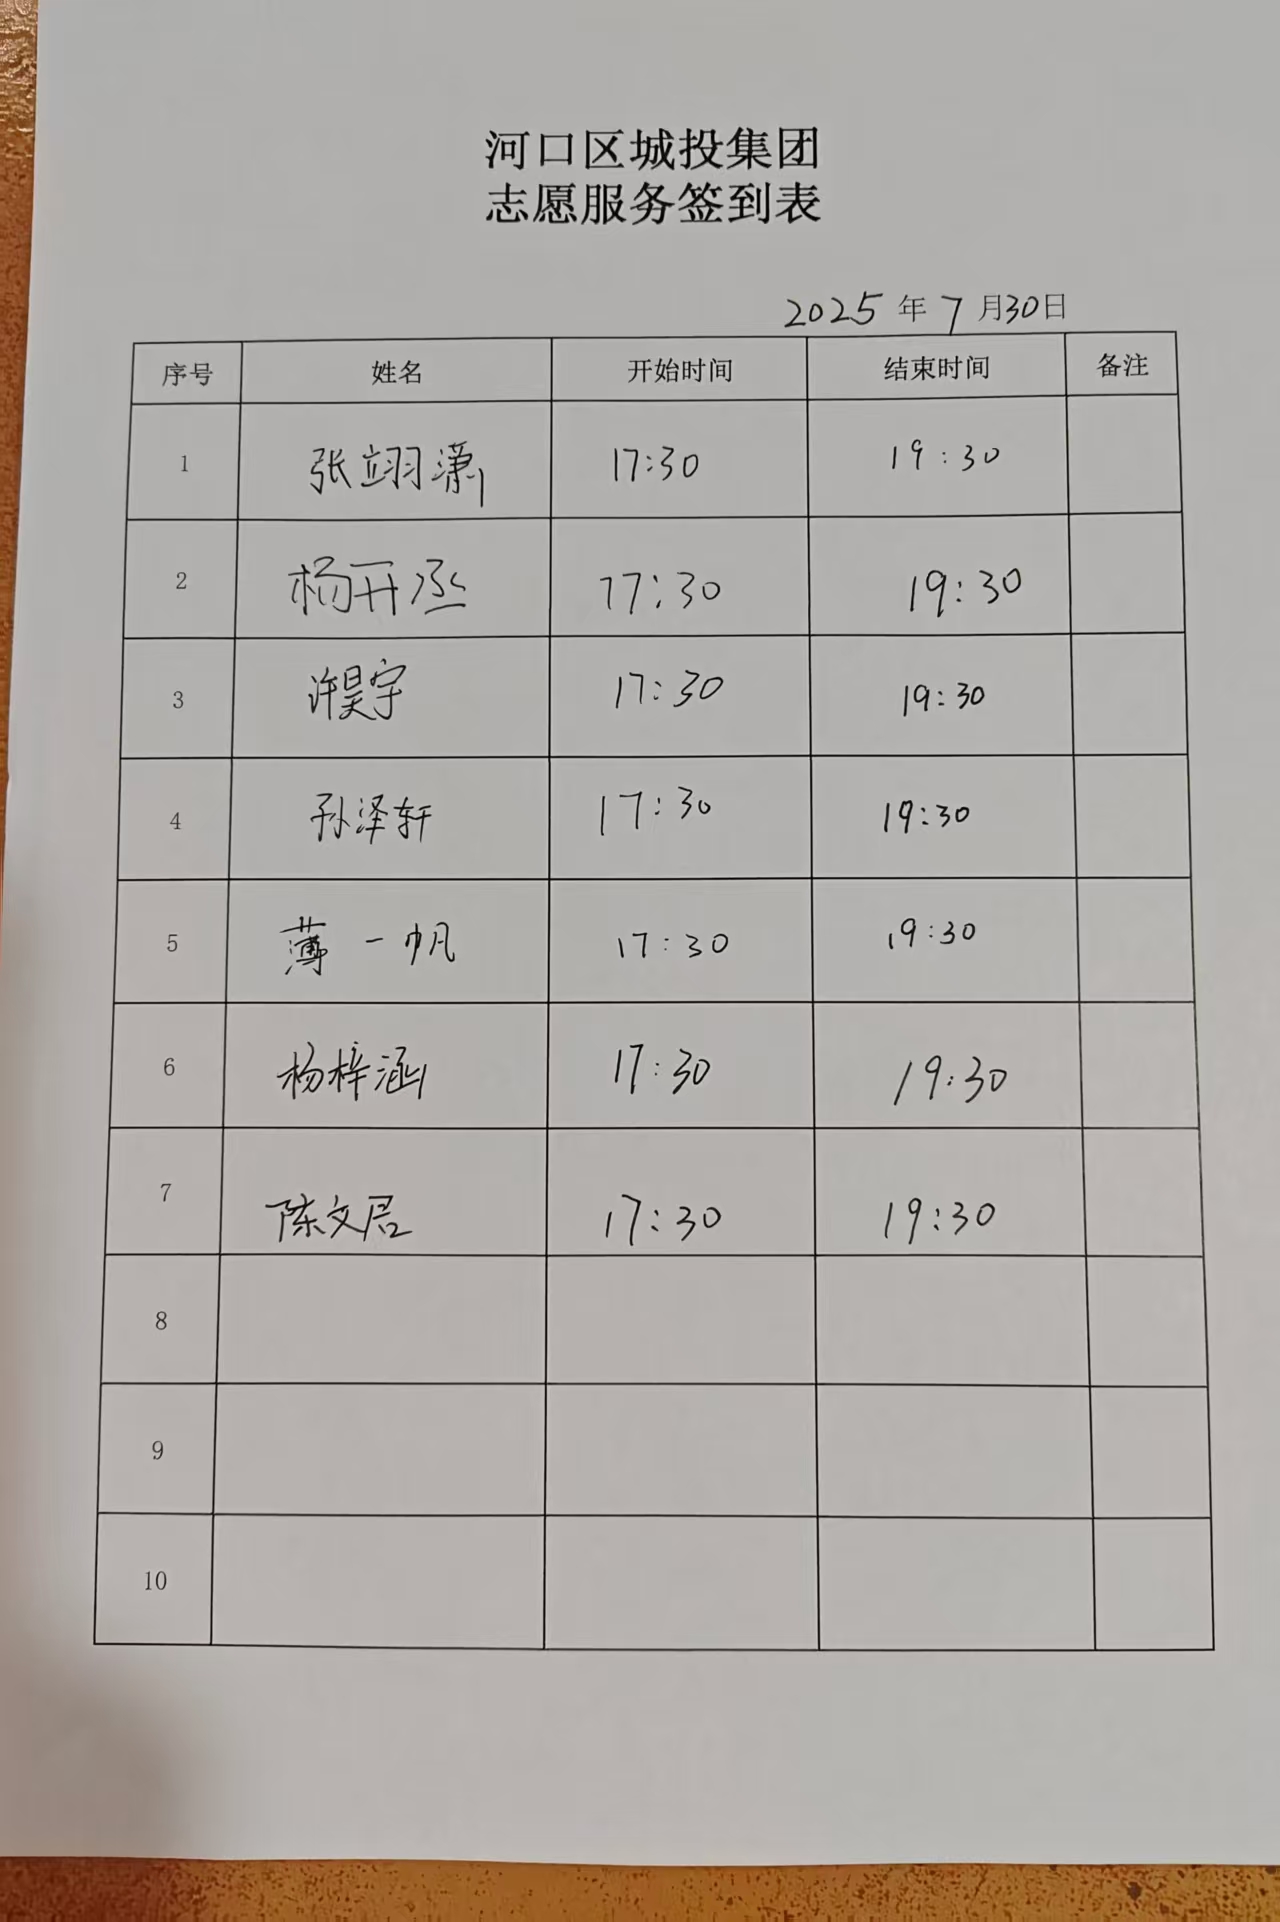 河口区城投集团
志愿服务签到表
2025年7月30日
序号 姓名 开始时间 结束时间 备注
1 张翊潇 17:30 19:30
2 杨开丞 17:30 19:30
3 许昊宇 17:30 19:30
4 孙泽轩 17:30 19:30
5 薄一帆 17:30 19:30
6 杨梓涵 17:30 19:30
7 陈文君 17:30 19:30
8
9
10